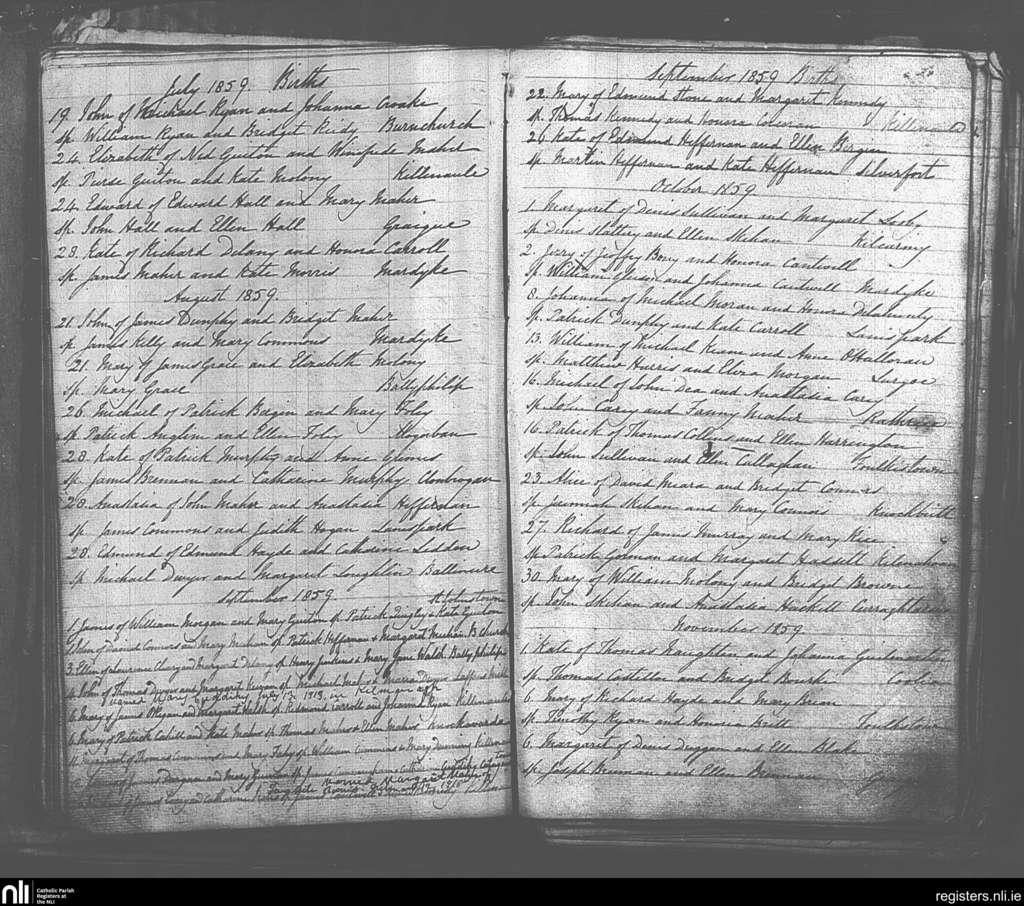 July 1859. Births
19. John of Michael Ryan and Johanna Croake
sp. William Ryan and Bridget Reidy Burnchurch
24. Elizabeth of Ned Guiton and Winifride Maher
sp. Pierse Guiton and Kate Molony Killenaule
24. Edward of Edward Hall and Mary Maher
sp. John Hall and Ellen Hall Graigue
28. Kate of Richard Delany and Honora Carroll
sp. James Maher and Kate Morris Mardyke
August 1859.
21. John of James Dunphy and Bridget Maher
sp. James Kelly and Mary Commons Mardyke
21. Mary of James Grace and Elizabeth Molony
sp. Mary Grace Ballyphilip
26. Michael of Patrick Bagin and Mary Foley
sp. Patrick Anglim and Ellen Foley
28. Kate of Patrick Murphy and Anne
sp. James Brennan and Catharine Murphy Clonbrogan
28. Anastasia of John Maher and Anastasia Heffernan
sp. James Commons and Judith Hogan Lanespark
28. Edmund of Edmund Hayde and Catharine Leddon
sp. Michael Dwyer and Margaret Loughlin Ballincure
September 1859 St Johnstown
1. James of William Morgan and Mary Guiton sp. Patrick Quigley & Kate Guiton
Ellen of Daniel Connors and Mary Meehan sp. Patrick Heffernan & Margaret Meehan B.Church
3. Ellen of Laurence Cleary and Margaret Delany sp. Henry Jenkins & Mary Jane Walsh Ballyphilip
4. John of Thomas Dwyer and Margaret sp. Michael Maher & Maria Dwyer
married Mary July 13, 1913, in
6. Mary of James O'Regan and Margaret sp. Edmond Carroll and Johanna Ryan Killenaule
6. Mary of Patrick Cahill and Kate Maher sp. Thomas Meehan & Ellen Maher
11. Margaret of Thomas Commons and Mary Fahey sp. William Commons & Mary Killenaule
Duggan and Mary sp. James and Catherine
married Margaret
James Carey and Catharine sp. James Cantwell
September 1859 Births
22. Mary of Edmund Stone and Margaret Kennedy
sp. Thomas Kennedy and Honora Coleman Killenaule
26 Kate of Edmund Heffernan and Ellen Bergin
sp. Martin Heffernan and Kate Heffernan Silverfort
October 1859
1. Margaret of Denis Sullivan and Margaret
sp. Denis Slattery and Ellen Skehan
2. Jerry of Jeoffry Bony and Honora Cantwell
sp. William Gleeson and Johanna Cantwell Mardyke
8. Johanna of Michael Moran and Honora Delahunty
sp. Patrick Dunphy and Kate Carroll Lanispark
13. William of Michael Keane and Anne O'Halloran
sp. Matthew Harris and Eliza Morgan Lurgoe
16. Michael of John Dea and Anastasia Carey
sp. John Carey and Fanny Maher
16. Patrick of Thomas Collins and Ellen Harrington
sp. John Sullivan and Ellen Callaghan
23. Alice of David Meara and Bridget Connors
sp. Jeremiah Skehan and Mary Connors
27. Richard of James Murray and Mary Rice
sp. Patrick Gorman and Margaret Hackett
30. Mary of William Molony and Bridget Browne
sp. John Skehan and Anastasia Hackett
November 1859.
1. Kate of Thomas Naughton and Johanna
sp. Thomas Costollor and Bridget Bourke
6 Mary of Richard Hayde and Mary Brien
sp. Timothy Ryan and Honoria Britt
6. Margaret of Denis Duggan and Ellen Blake
sp. Joseph Brennan and Ellen Brennan
nli
Catholic Parish
Registers at
the NLI
registers.nli.ie